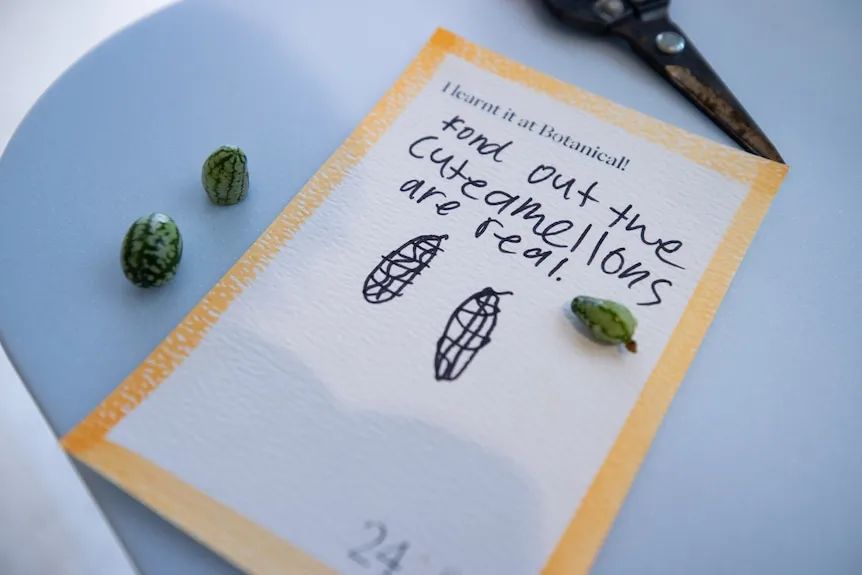 I learnt it at Botanical!
Fond out the
cuteamellons
are real.
24